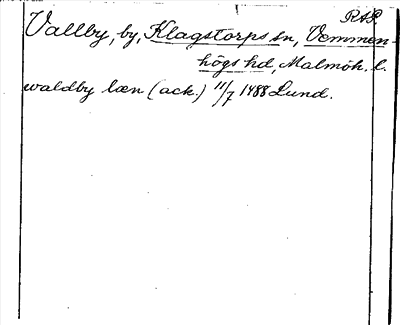 RAP.
Vallby, by, Klagstorps sn, Vemmen-
högs hd, Malmöh. l.
waldby læn (ack.) 11/7 1488 Lund.